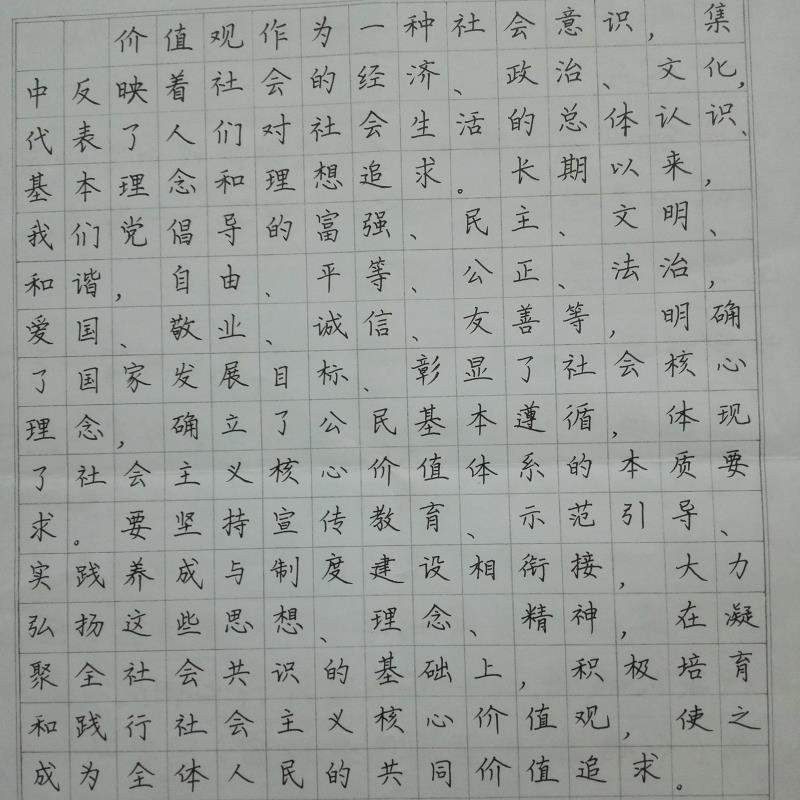 价值观作为一种社会意识，集
中反映着社会的经济、政治、文化，
代表了人们对社会生活的总体认识、
基本理念和理想追求。长期以来，
我们党倡导的富强、民主、文明、
和谐，自由、平等、公正、法治，
爱国、敬业、诚信、友善等，明确
了国家发展目标、彰显了社会核心
理念，确立了公民基本遵循，体现
了社会主义核心价值体系的本质要
求。要坚持宣传教育、示范引导、
实践养成与制度建设相衔接，大力
弘扬这些思想、理念、精神，在凝
聚全社会共识的基础上，积极培育
和践行社会主义核心价值观，使之
成为全体人民的共同价值追求。